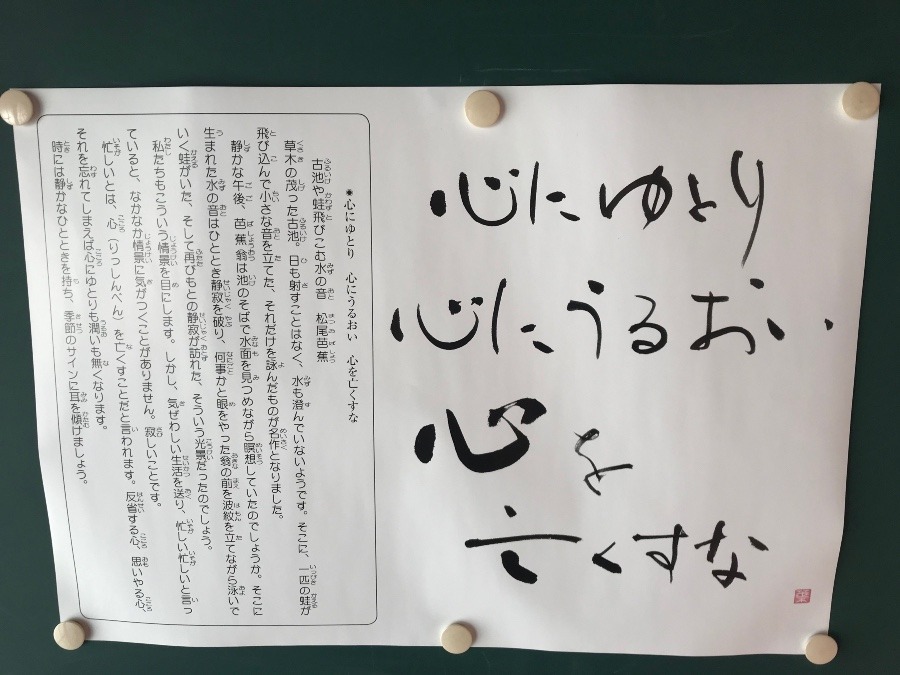 心にゆとり
心にうるおい
心を
亡くすな
●心にゆとり　心にうるおい　心を亡くすな
古池や蛙飛びこむ水の音　松尾芭蕉
草木の茂った古池。日も射すことはなく、水も澄んでいないようです。そこに、一匹の蛙が
飛び込んで小さな音を立てた、それだけを詠んだものが名作となりました。
静かな午後、芭蕉翁は池のそばで水面を見つめながら瞑想していたのでしょうか。そこに
生まれた水の音はひととき静寂を破り、何事かと眼をやった翁の前を波紋を立てながら泳いで
いく蛙がいた、そして再びもとの静寂が訪れた、そういう光景だったのでしょう。
私たちもこういう情景を目にします。しかし、気ぜわしい生活を送り、忙しい忙しいと言っ
ていると、なかなか情景に気がつくことがありません。寂しいことです。
忙しいとは、心（りっしんべん）を亡くすことだと言われます。反省する心、思いやる心、
それを忘れてしまえば心にゆとりも潤いも無くなります。
時には静かなひとときを持ち、季節のサインに耳を傾けましょう。